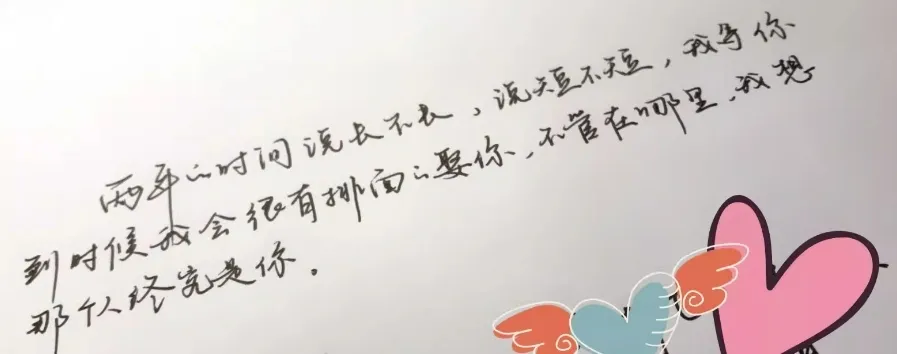 两年的时间说长不长，说短不短，我等你
到时候我会很有排面的娶你，不管在哪里，我想
那个人终究是你。